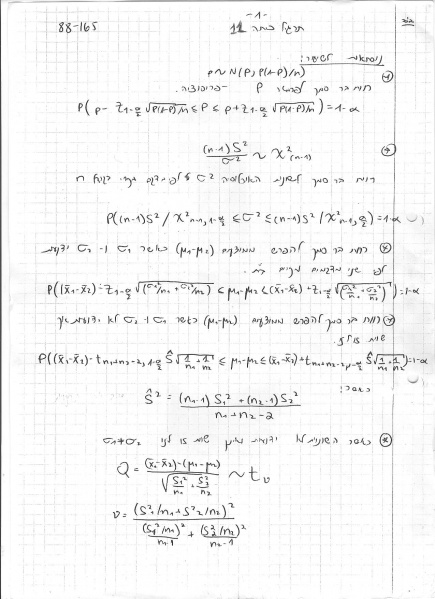 בס"ד
-1-
88-165
תרגיל כתה 11
נוסחאות לשיעור:
p ~ N(P, P(1-P)/n)
רווח בר סמך לפרמטר P - פרופורציה.
P( p - Z1-α/2 √P(1-P)/n ≤ P ≤ p + Z1-α/2 √P(1-P)/n ) = 1-α
(n-1)S² / σ² ~ χ²(n-1)
רווח בר סמך לשונות האוכלוסיה σ² על פי מדגם מקרי בגודל n
P( (n-1)S² / χ²n-1,1-α/2 ≤ σ² ≤ (n-1)S² / χ²n-1,α/2 ) = 1-α
רווח בר סמך להפרש ממוצעים (μ1-μ2) כאשר σ1 ו- σ2 ידועות
לפי שני מדגמים מקרים ב"ת.
P( (x̄1-x̄2) - Z1-α/2 √(σ1²/n1 + σ2²/n2) ≤ μ1-μ2 ≤ (x̄1-x̄2) + Z1-α/2 √(σ1²/n1 + σ2²/n2) ) = 1-α
רווח בר סמך להפרש ממוצעים (μ1-μ2) כאשר σ1 ו- σ2 לא ידועות אך
שוות זו לזו.
P( (x̄1-x̄2) - tn1+n2-2,1-α/2 Ŝ √(1/n1 + 1/n2) ≤ μ1-μ2 ≤ (x̄1-x̄2) + tn1+n2-2,1-α/2 Ŝ √(1/n1 + 1/n2) ) = 1-α
כאשר:
Ŝ² = ((n1-1)S1² + (n2-1)S2²) / (n1+n2-2)
כאשר השונויות לא ידועות ואינן שוות זו לזו σ1≠σ2
Q = ((x̄1-x̄2) - (μ1-μ2)) / √(S1²/n1 + S2²/n2) ~ tν
ν = (S1²/n1 + S2²/n2)² / ((S1²/n1)²/(n1-1) + (S2²/n2)²/(n2-1))